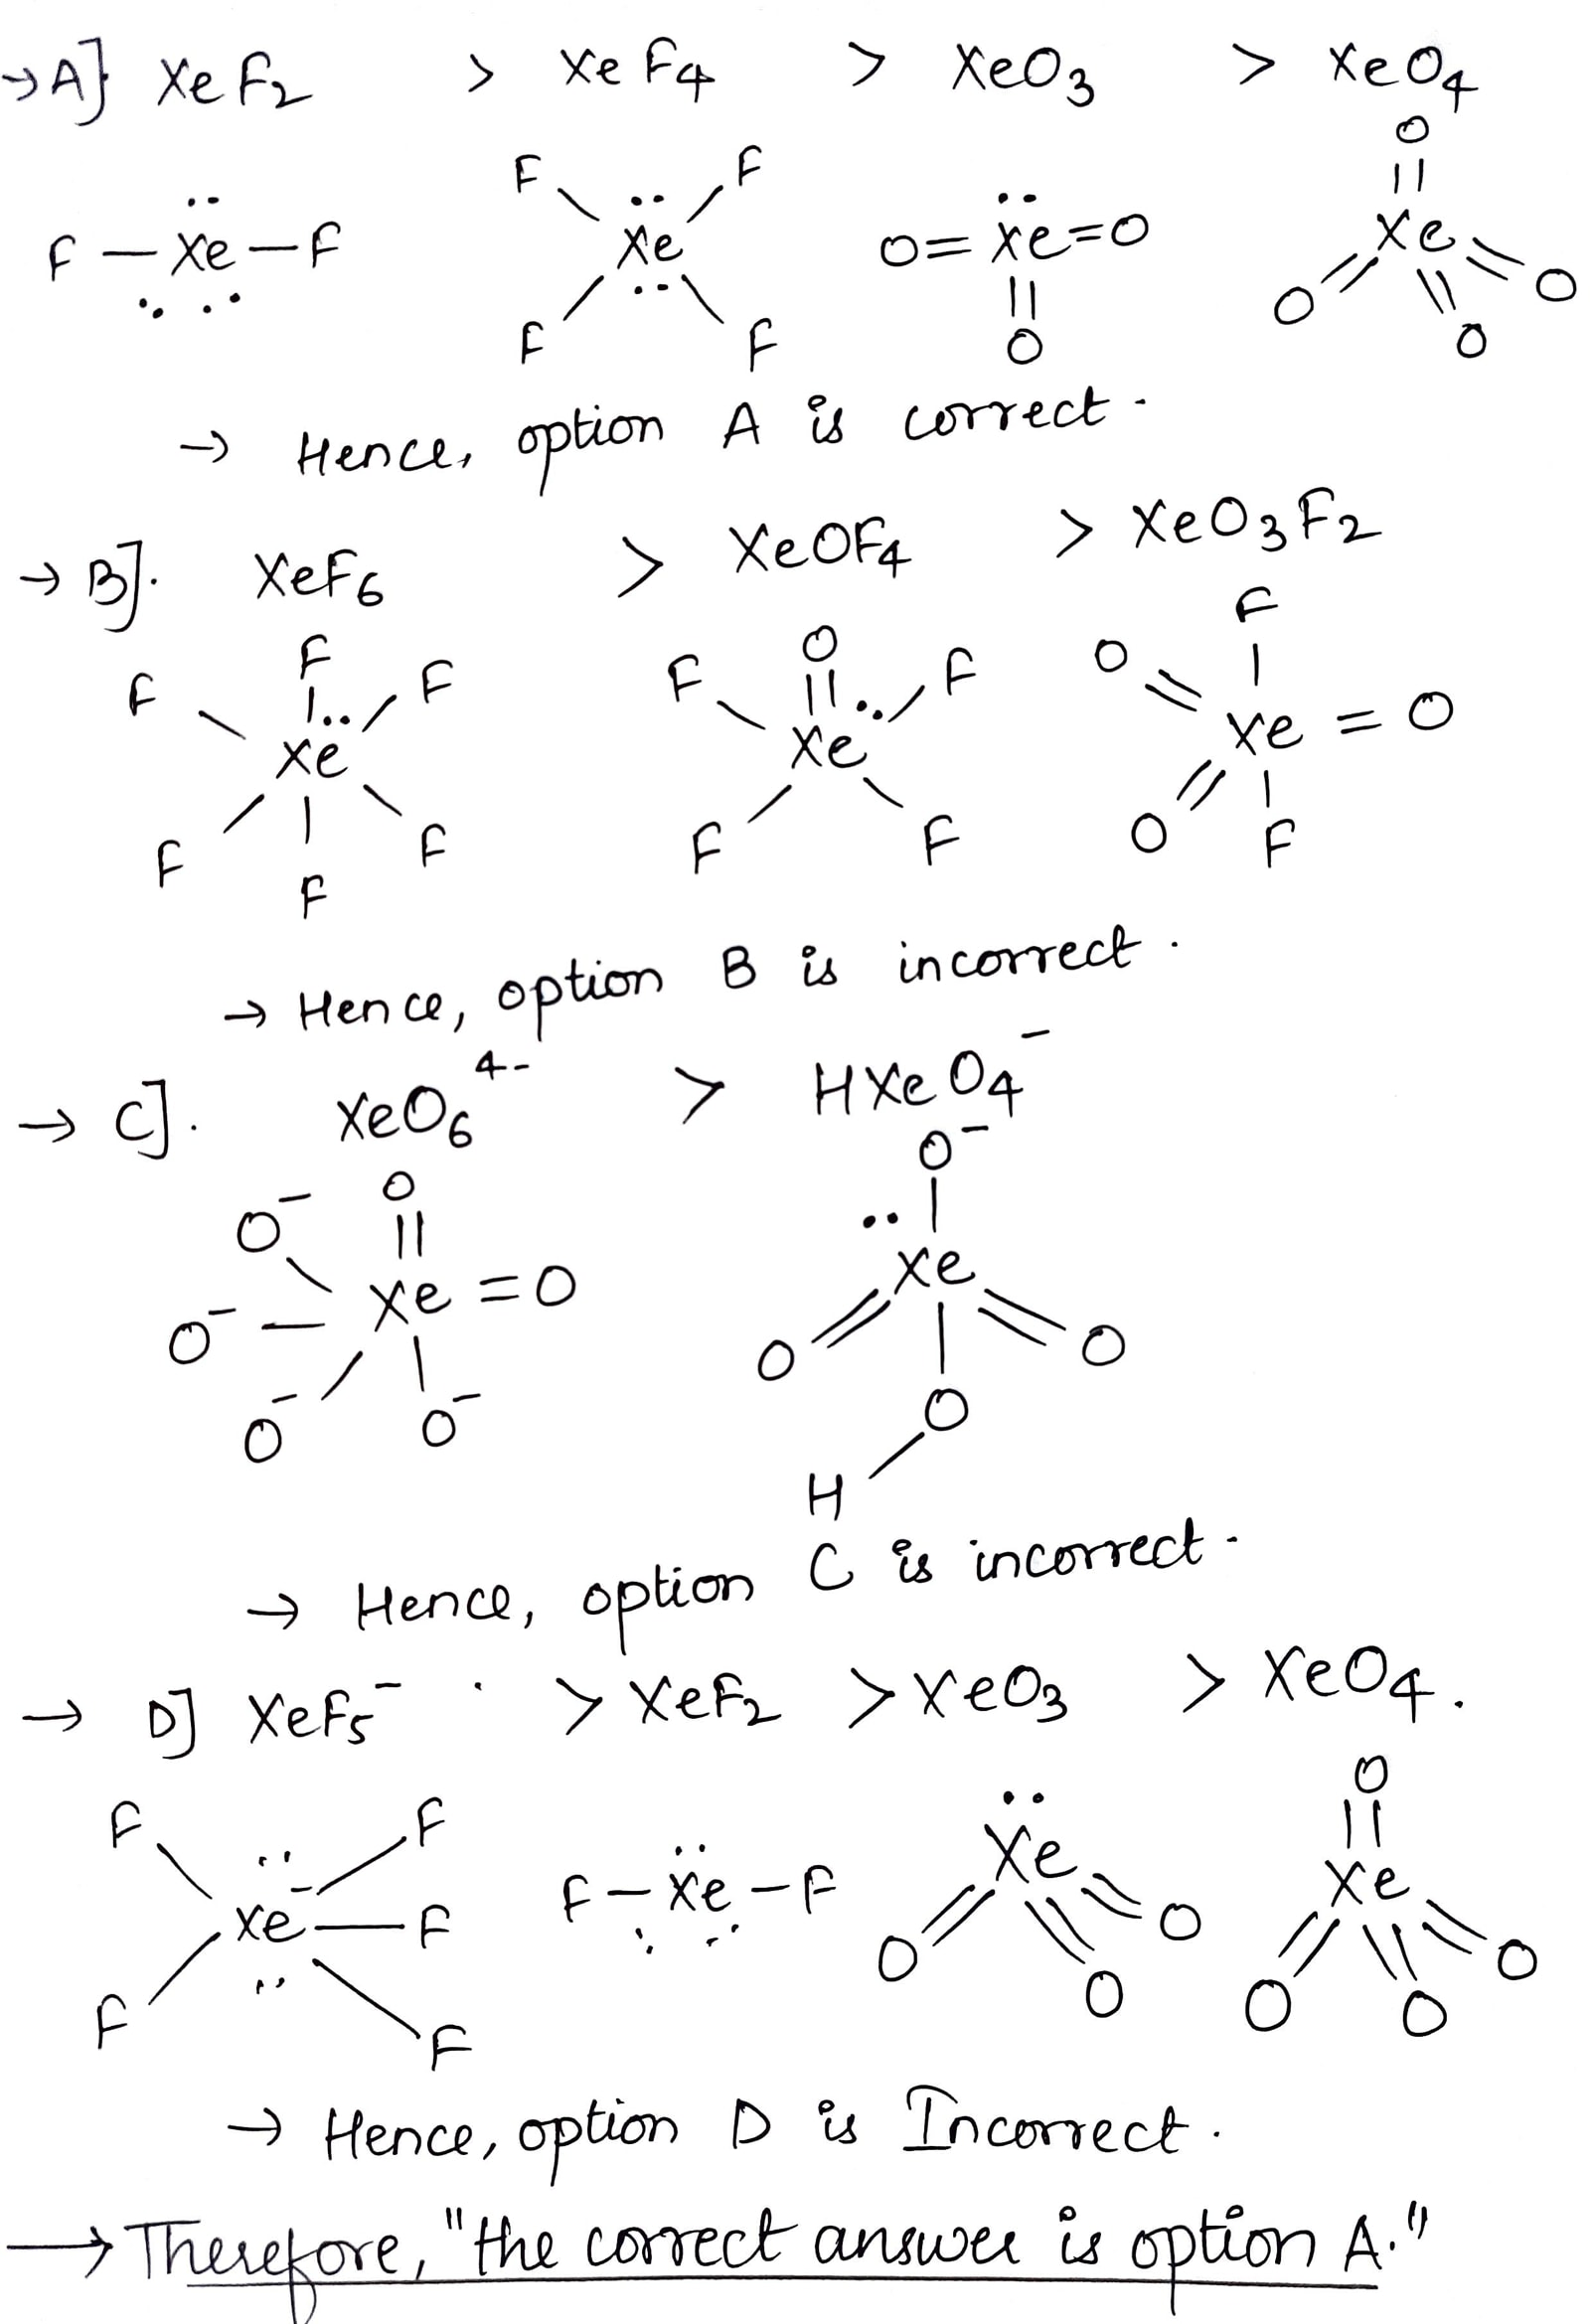 → A] XeF2 > XeF4 > XeO3 > XeO4
O
F F
F – Xe – F Xe O = Xe = O Xe
F F O O O O
→ Hence, option A is correct.
→ B]. XeF6 > XeOF4 > XeO3F2
F O F
F F F F O
Xe Xe Xe = O
F F F F O F
F
→ Hence, option B is incorrect.
→ C]. XeO6 4- > HXeO4 -
O- O O-
Xe = O Xe
O- – O O
O- O- O
H
→ Hence, option C is incorrect.
→ D] XeF5 - . > XeF2 > XeO3 > XeO4.
O
F F Xe
Xe – F F – Xe – F O O O Xe
F F O O O
→ Hence, option D is Incorrect.
→ Therefore, "the correct answer is option A."